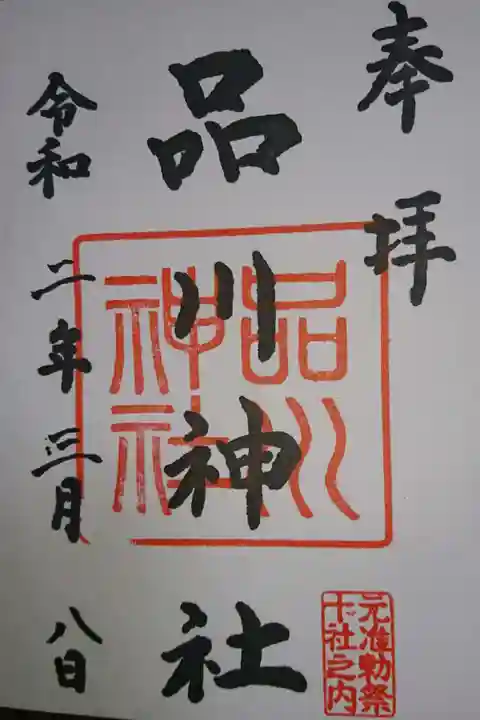 奉拝
品川神社
品川神社
元准勅祭
十社之内
令和二年三月八日